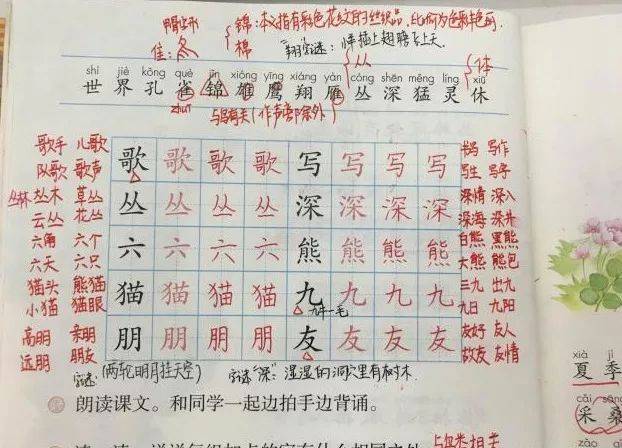 锦:本义指有彩色花纹的丝织品,比喻为色彩鲜艳。
棉
隹:
"翔"字谜:羊插上翅膀飞上天。
从
体
shì jiè kǒng què jǐn xióng yīng xiáng yàn cóng shēn měng líng xiū
世 界 孔 雀 锦 雄 鹰 翔 雁 丛 深 猛 灵 休
zhuī
与鸟有关(作声旁除外)
歌手 儿歌 歌 歌 歌 歌 写 写 写 写 书写 写作
队歌 歌声 写生 写字
丛林 丛木 草丛 丛 丛 丛 丛 深 深 深 深 深情 深入
云丛 花丛 深海 深井
六角 六个 六 六 六 六 熊 熊 熊 熊 白熊 黑熊
六天 六只 大熊 熊包
猫头 熊猫 猫 猫 猫 猫 九 九 九 九 三九 出九
小猫 猫眼 九牛一毛 九日 九阳
高朋 亲朋 朋 朋 朋 朋 友 友 友 友 友好 友人
远朋 朋友 故友 友情
字谜:(两轮明月挂天空) 字谜"深":湿湿的洞穴里有树木
朗读课文。和同学一起边拍手边背诵。
xià jì
夏 季
cǎi sāng
采 桑